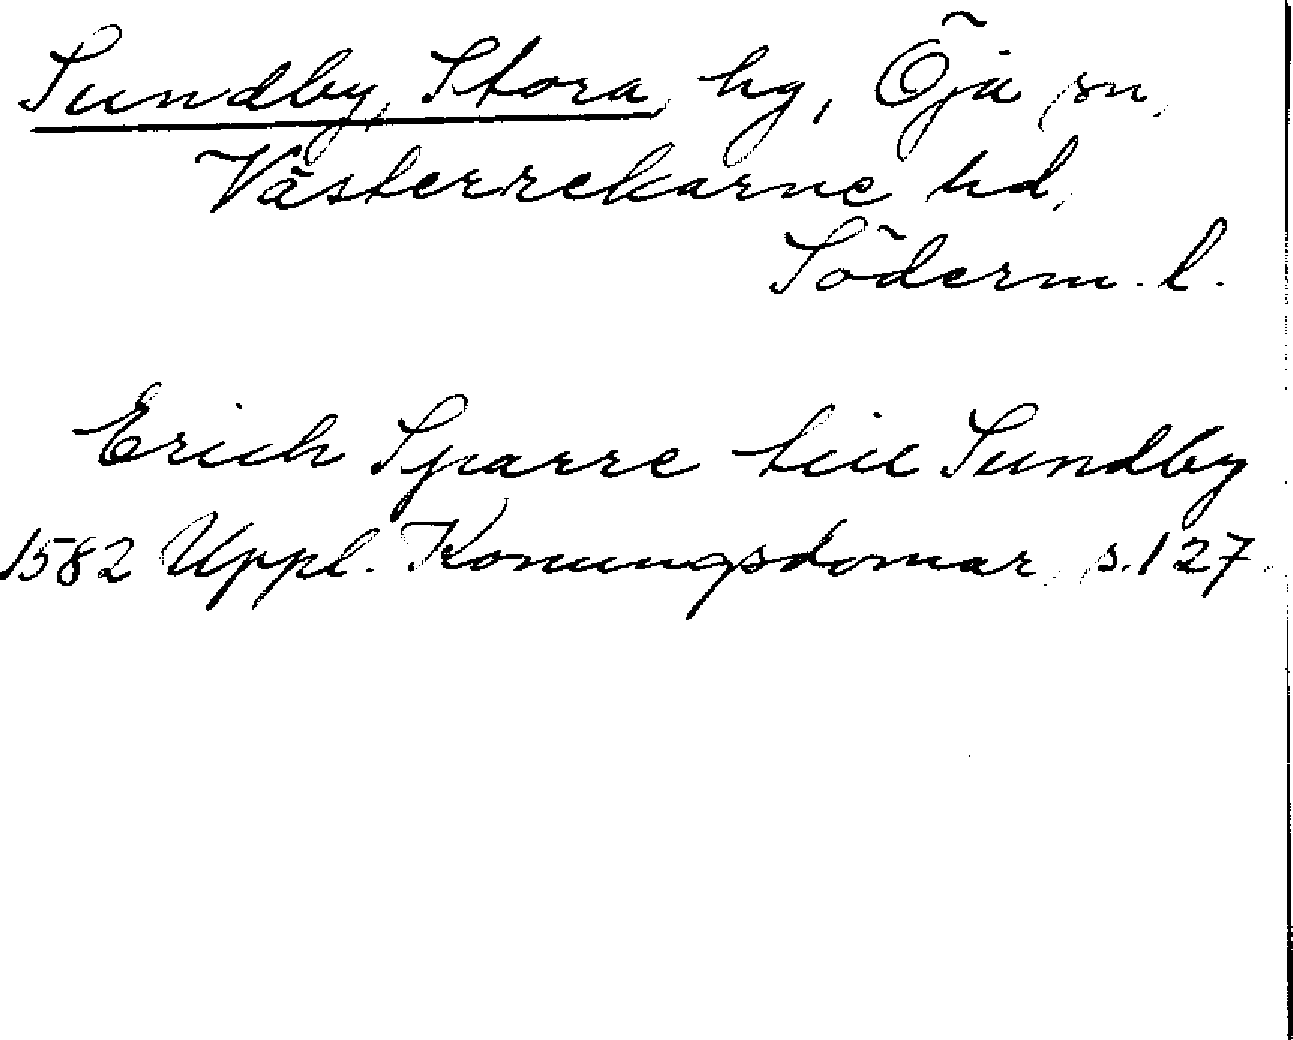 Sundby, Stora, hg, Öja sn,
Västerrekarne hd,
Söderm. l.
Erich Sparre till Sundby
1582 Uppl. Konungsdomar, s. 127.